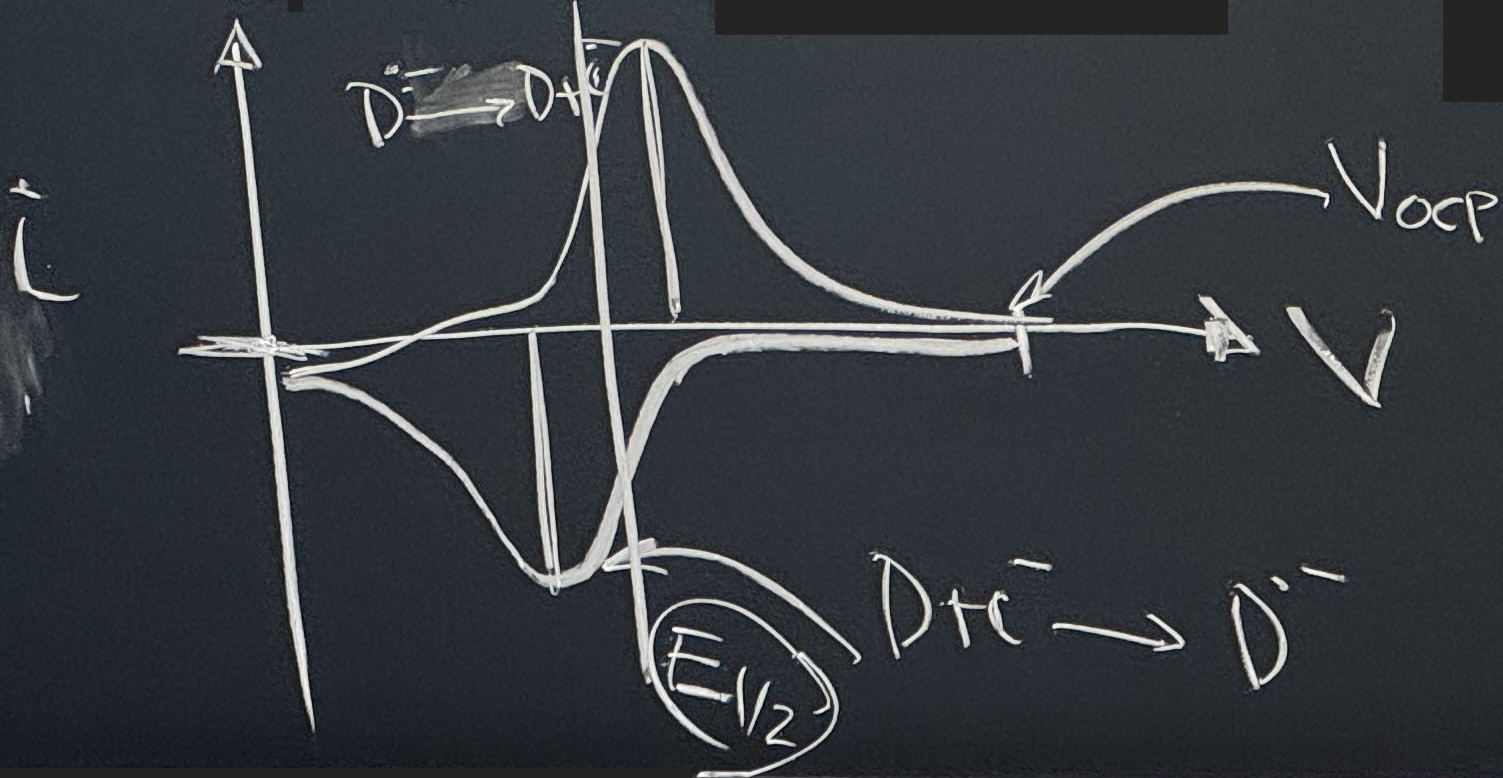 D•⁻ → D+e⁻
i
V_OCP
V
D+e⁻ → D•⁻
E_1/2